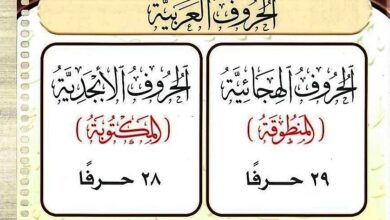 الحروف العربية
الحُرُوفُ الهِجَائِيَّةُ
(المَنْطُوقَةُ)
٢٩ حرفًا
الحُرُوفُ الأَبْجَدِيَّةُ
(المَكْتُوبَةُ)
٢٨ حرفًا